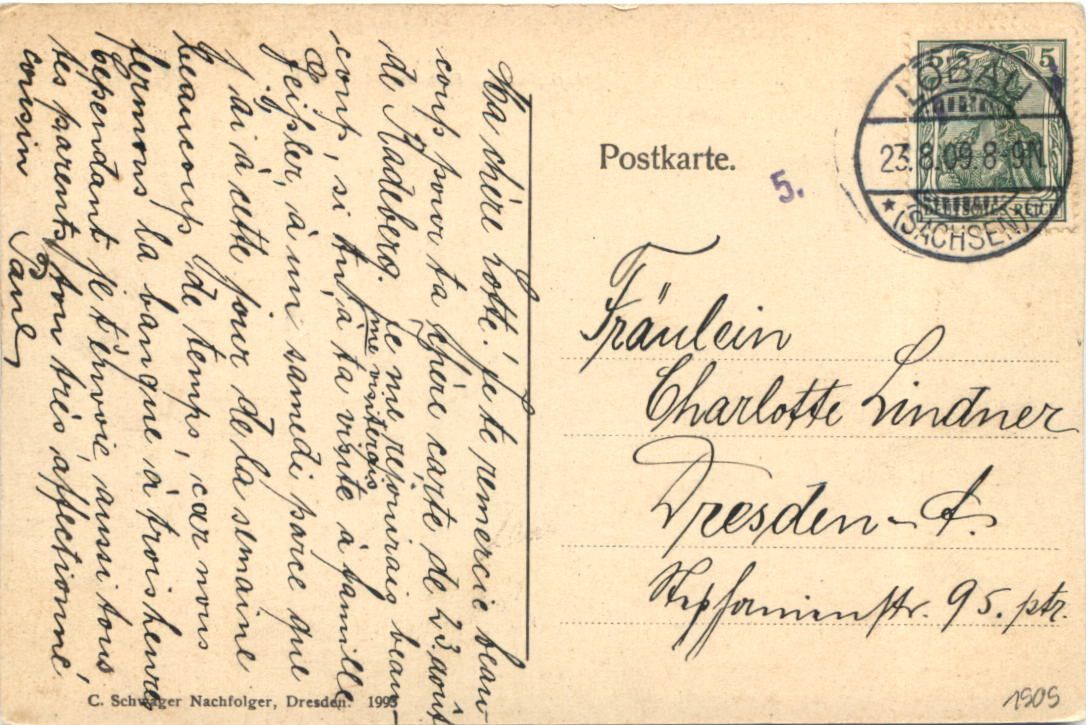 Ma chère Lotte! je te remercie beau
coup pour ta chère carte de 23. août
de Radeberg. Je me rejouirais beau
me visiterais
coup, si tu, à ta visite à famille
Geipler, à un samedi parce que
j'ai à cette jour de la semaine
beaucoup de temps, car nous
fermons la banque à trois heures
Cependant je t'envoie, aussi tous
tes parents, ton très affectionné
cousin
Paul
Postkarte.
5.
5
DEUTSCHES REICH
LÖBAU
23.8.09 8-9N.
* (SACHSEN)
Fräulein
Charlotte Lindner
Dresden-A.
Stephanienstr. 95. ptr.
C. Schwager Nachfolger, Dresden. 1993
1909